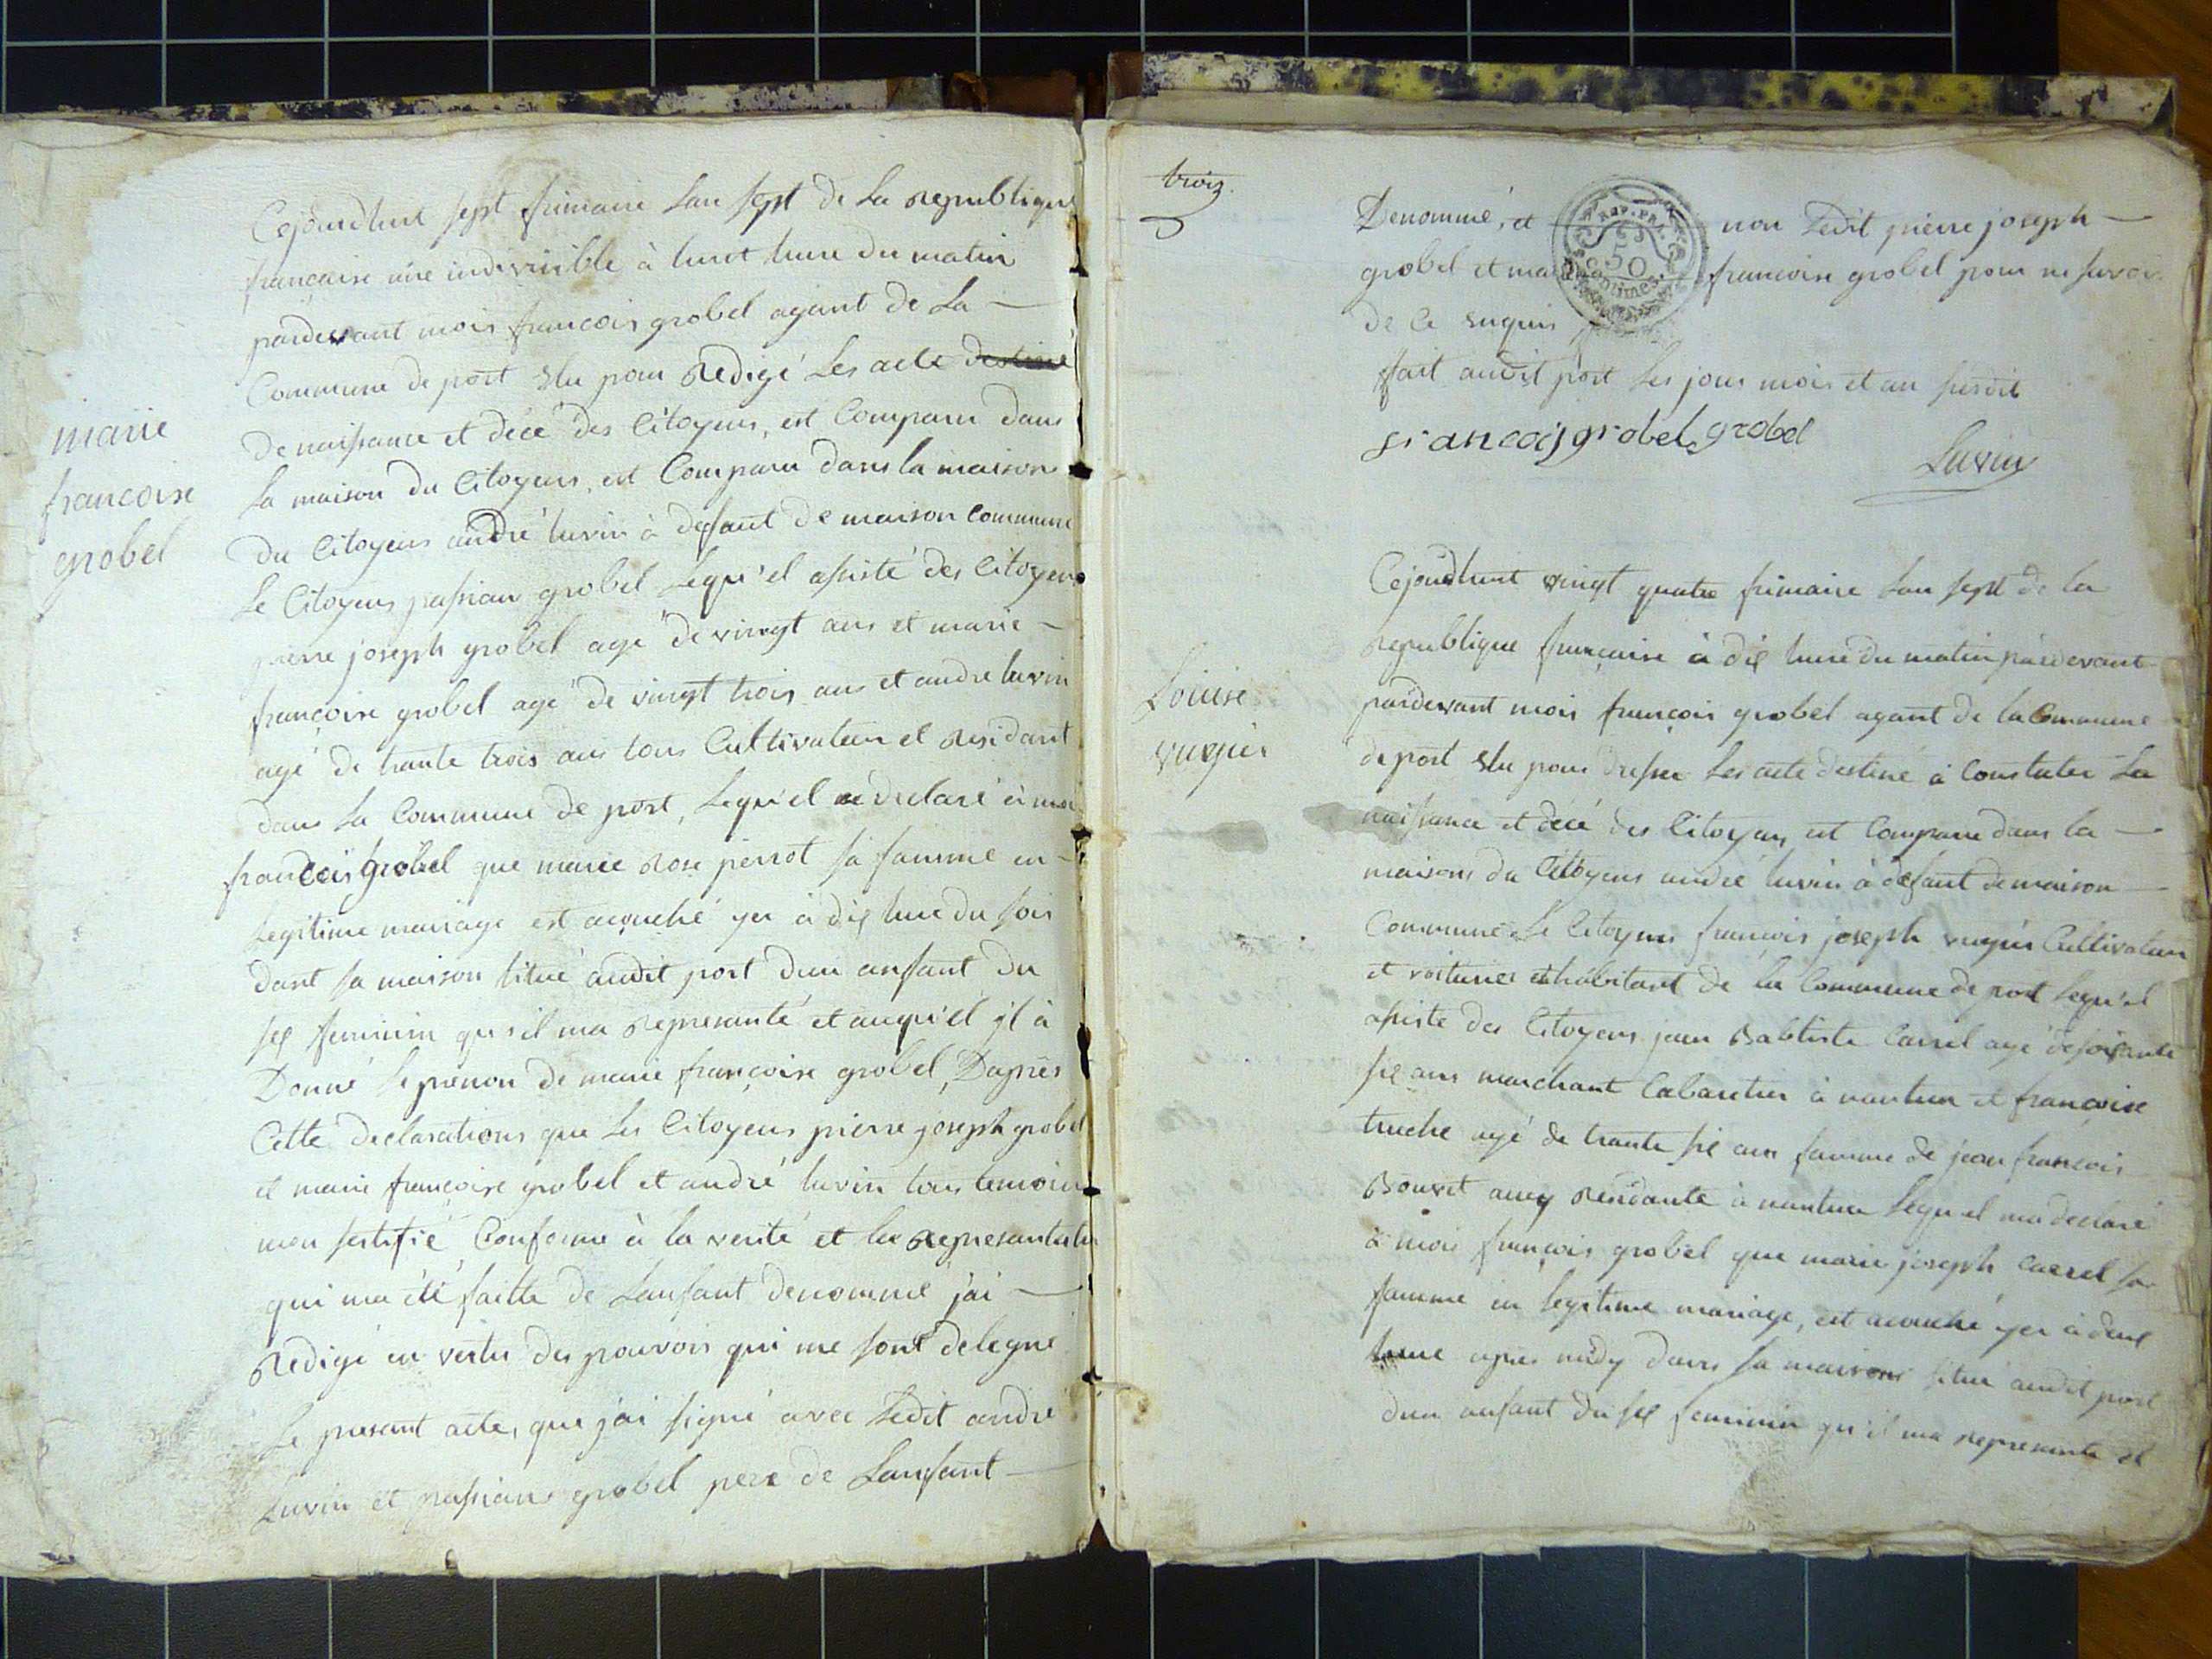 Cejourdhuit sept frimaire Lan sept de La republique
française une indivisible à huit heure du matin
pardevant mois francois grobel agant de La
Commune de port Elu pour Redigé Les acte destiné
de naissance et décé des Citoyens, est Comparu dans
La maison du Citoyens, est Comparu dans la maison
du Citoyens andré luvin à defaut de maison commune
Le Citoyens passian grobel Lequ'el assisté des Citoyens
pierre joseph grobel age de vingt ans et marie
françoise grobel agé de vingt trois ans et andre luvin
agé de trante trois ans tous Cultivateur et Residant
dans La Commune de port, Lequ'el a declaré à moi
francois grobel que marie Rose perrot sa famme en
Legitime mariage est acouché yer à dix heure du soir
dant sa maison situé audit port dun anfant du
sex feminin qu'il ma Represanté et auqu'el jl à
Donné Le prenon de marie françoise grobel, Dapres
Cette declarations que Les Citoyens pierre joseph grobel
et marie françoise grobel et andré luvin tous temoins
mon sertifié Conforme à la verité et la Represantation
qui ma été faitte de Lanfant denommé jai
Redigé en vertu des pouvoirs qui me sont delegné
Le presant acte, que j'ai signé avec Ledit andré
Luvin et passian grobel pere de Lanfant
marie
francoise
grobel
trois
Denommé, et non Ledit pierre joseph
grobel et marie francoise grobel pour ne savoir
de ce enquis
REP. FRA.
50
centimes
fait audit port Les jour mois et an susdit
francois grobel grobel
Luvin
Louise
vugier
Cejourdhuit vingt quatre frimaire Lan sept de la
republique française à dix heure du matin pardevant
pardevant mois françois grobel agant de la Commune
de port Elu pour dresser Les acte destiné à Constater La
naissance et décé des Citoyens est Comparu dans la
maisons du Citoyens andré luvin à défaut de maison
Commune Le Citoyens francois joseph vugier Cultivateur
et voiturier et habitant de la Commune de port Lequ'el
assiste des Citoyens jean Baptiste Carrel agé de soixante
six ans marchant Cabaretier à nantua et françoise
truche agé de trante six ans famme de jean francois
Bouvet aussy Résidante à nantua Lequ'el ma declaré
à mois françois grobel que marie joseph Carrel sa
famme en legitime mariage, est acouché yer à deux
heure apres midy dans sa maisons situé audit port
dun anfant du sex feminin qu'il ma represanté et